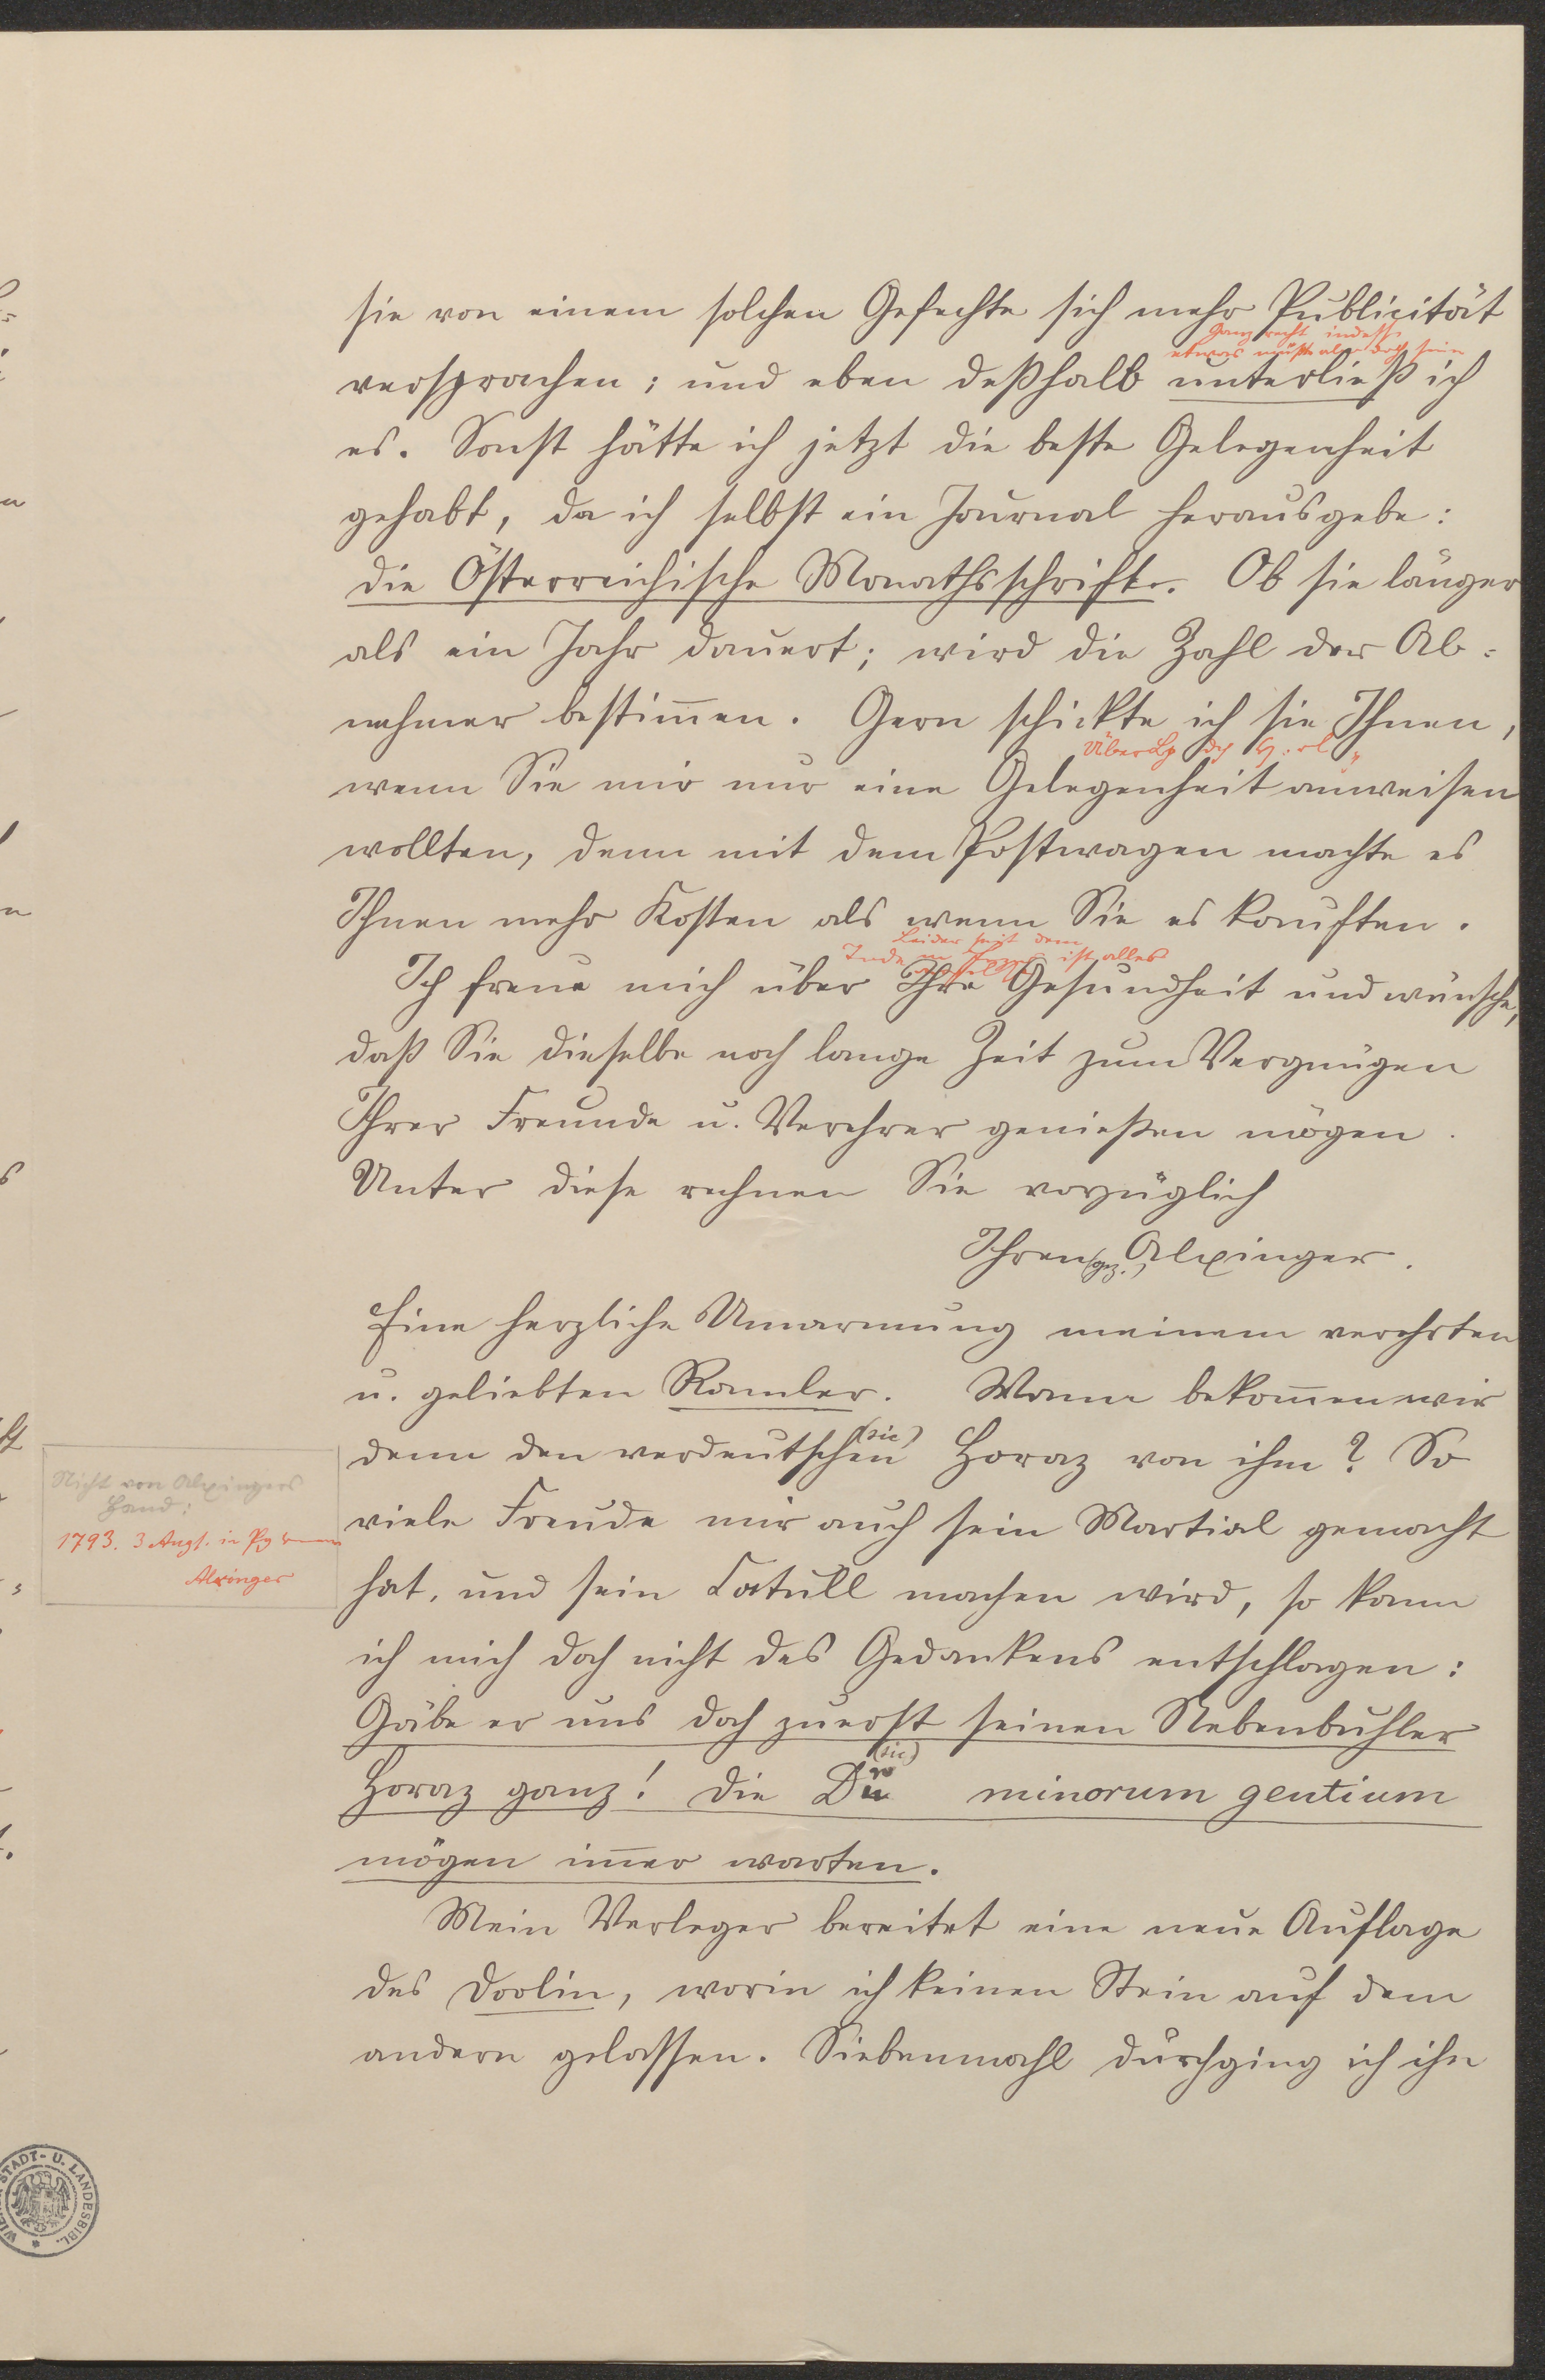 sie von einem solchen Gefechte sich mehr Publicität
Ganz recht indeß
etwas müßte aber doch sein
versprachen; und eben deßhalb unterließ ich
es. Sonst hätte ich jetzt die beste Gelegenheit
gehabt, da ich selbst ein Journal herausgebe:
die Österreichische Monathsschrift. Ob sie länger
als ein Jahr dauert; wird die Zahl der Ab-
nehmer bestim̅en. Gern schickte ich sie Ihnen,
wenn Sie mir nur eine Gelegenheit anweisen
wollten, denn mit dem Postwagen machte es
Ihnen mehr Kosten als wenn Sie es kauften.
Leider seit dem
ist alles
Ich freue mich über Ihre Gesundheit und wünsche,
daß Sie dieselbe noch lange Zeit zum Vergnügen
Ihrer Freunde u. Verehrer genießen mögen.
Unter diese rechnen Sie vorzüglich
Ihren (gez.) Alxinger.
Eine herzliche Umarmung meinem verehrten
u. geliebten Ramler. Wann bekom̅en wir
denn den verdeutschen (sic) Horaz von ihm? So
viele Freude mir auch sein Martial gemacht
hat, und sein Catull machen wird, so kann
ich mich doch nicht des Gedankens entschlagen:
Gäbe er uns doch zuerst seinen Nebenbuhler
Horaz ganz! die Dii (sic) minorum gentium
mögen im̅er warten.
Mein Verleger bereitet eine neue Auflage
des Doolin, worin ich keinen Stein auf dem
andern gelassen. Siebenmahl durchging ich ihn
Nicht von Alxingers
Hand:
1793. 3 Augt. in
Alxinger
STADT- U. LANDESBIBL.